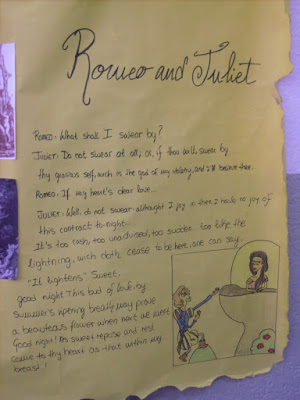 Romeo and Juliet
ROMEO: What shall I swear by?
JULIET: Do not swear at all; or, if thou wilt, swear by
thy gracious self, wich is the god of my idolatry, and I'll believe thee.
ROMEO: If my heart's dear love...
JULIET: Well, do not swear. althought I joy in thee, I have no joy of
this contract to-night...
It's too rash, too unadvised, too sudden. too like the
lightning, wich doth cease to be here, one can say.
"It lightens". Sweet,
good night! This bud of love, by
summer's ripening breath, may prove
a beauteous flower when next we meet
Good night! As sweet repose and rest
come to thy heart as that within my
breast!